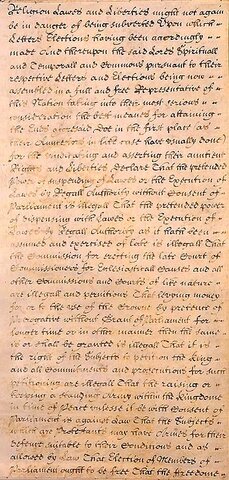 Religion Lawes and Liberties might not againe
be in danger of being subverted Upon which
Letters Elections haveing been accordingly
made And thereupon the said Lords Spirituall
and Temporall and Commons pursuant to their
respective Letters and Elections being now
assembled in a full and free Representative of
this Nation taking into their most serious
consideration the best meanes for attaining
the Ends aforesaid Doe in the first place as
their Auncestors in like case have usually done
for the vindicating and asserting their auntient
Rights and Liberties, Declare That the pretended
Power of suspending of Lawes or the Execution of
Lawes by Regall Authority without Consent of
Parliament is illegall That the pretended power
of dispensing with Lawes or the Execution of
Lawes by Regall Authority as it hath been
assumed and exercised of late is illegall That
the Commission for erecting the late Court of
Commissioners for Ecclesiasticall Causes and all
other Commissions and Courts of like nature
are illegall and pernitious That levying money
for or to the use of the Crowne by pretence of
Prerogative without Grant of Parliament for
longer time or in other manner then the same
is or shall be granted is illegall That it is
the right of the Subjects to petition the King
and all Commitments and prosecutions for such
petitioning are illegall That the raising or
keeping a standing Army within the Kingdome
in time of Peace unlesse it be with Consent of
Parliament is against Law That the Subjects
which are Protestants may have Armes for their
defence suitable to their Conditions and as
allowed by Law That Election of Members of
Parliament ought to be free That the freedome